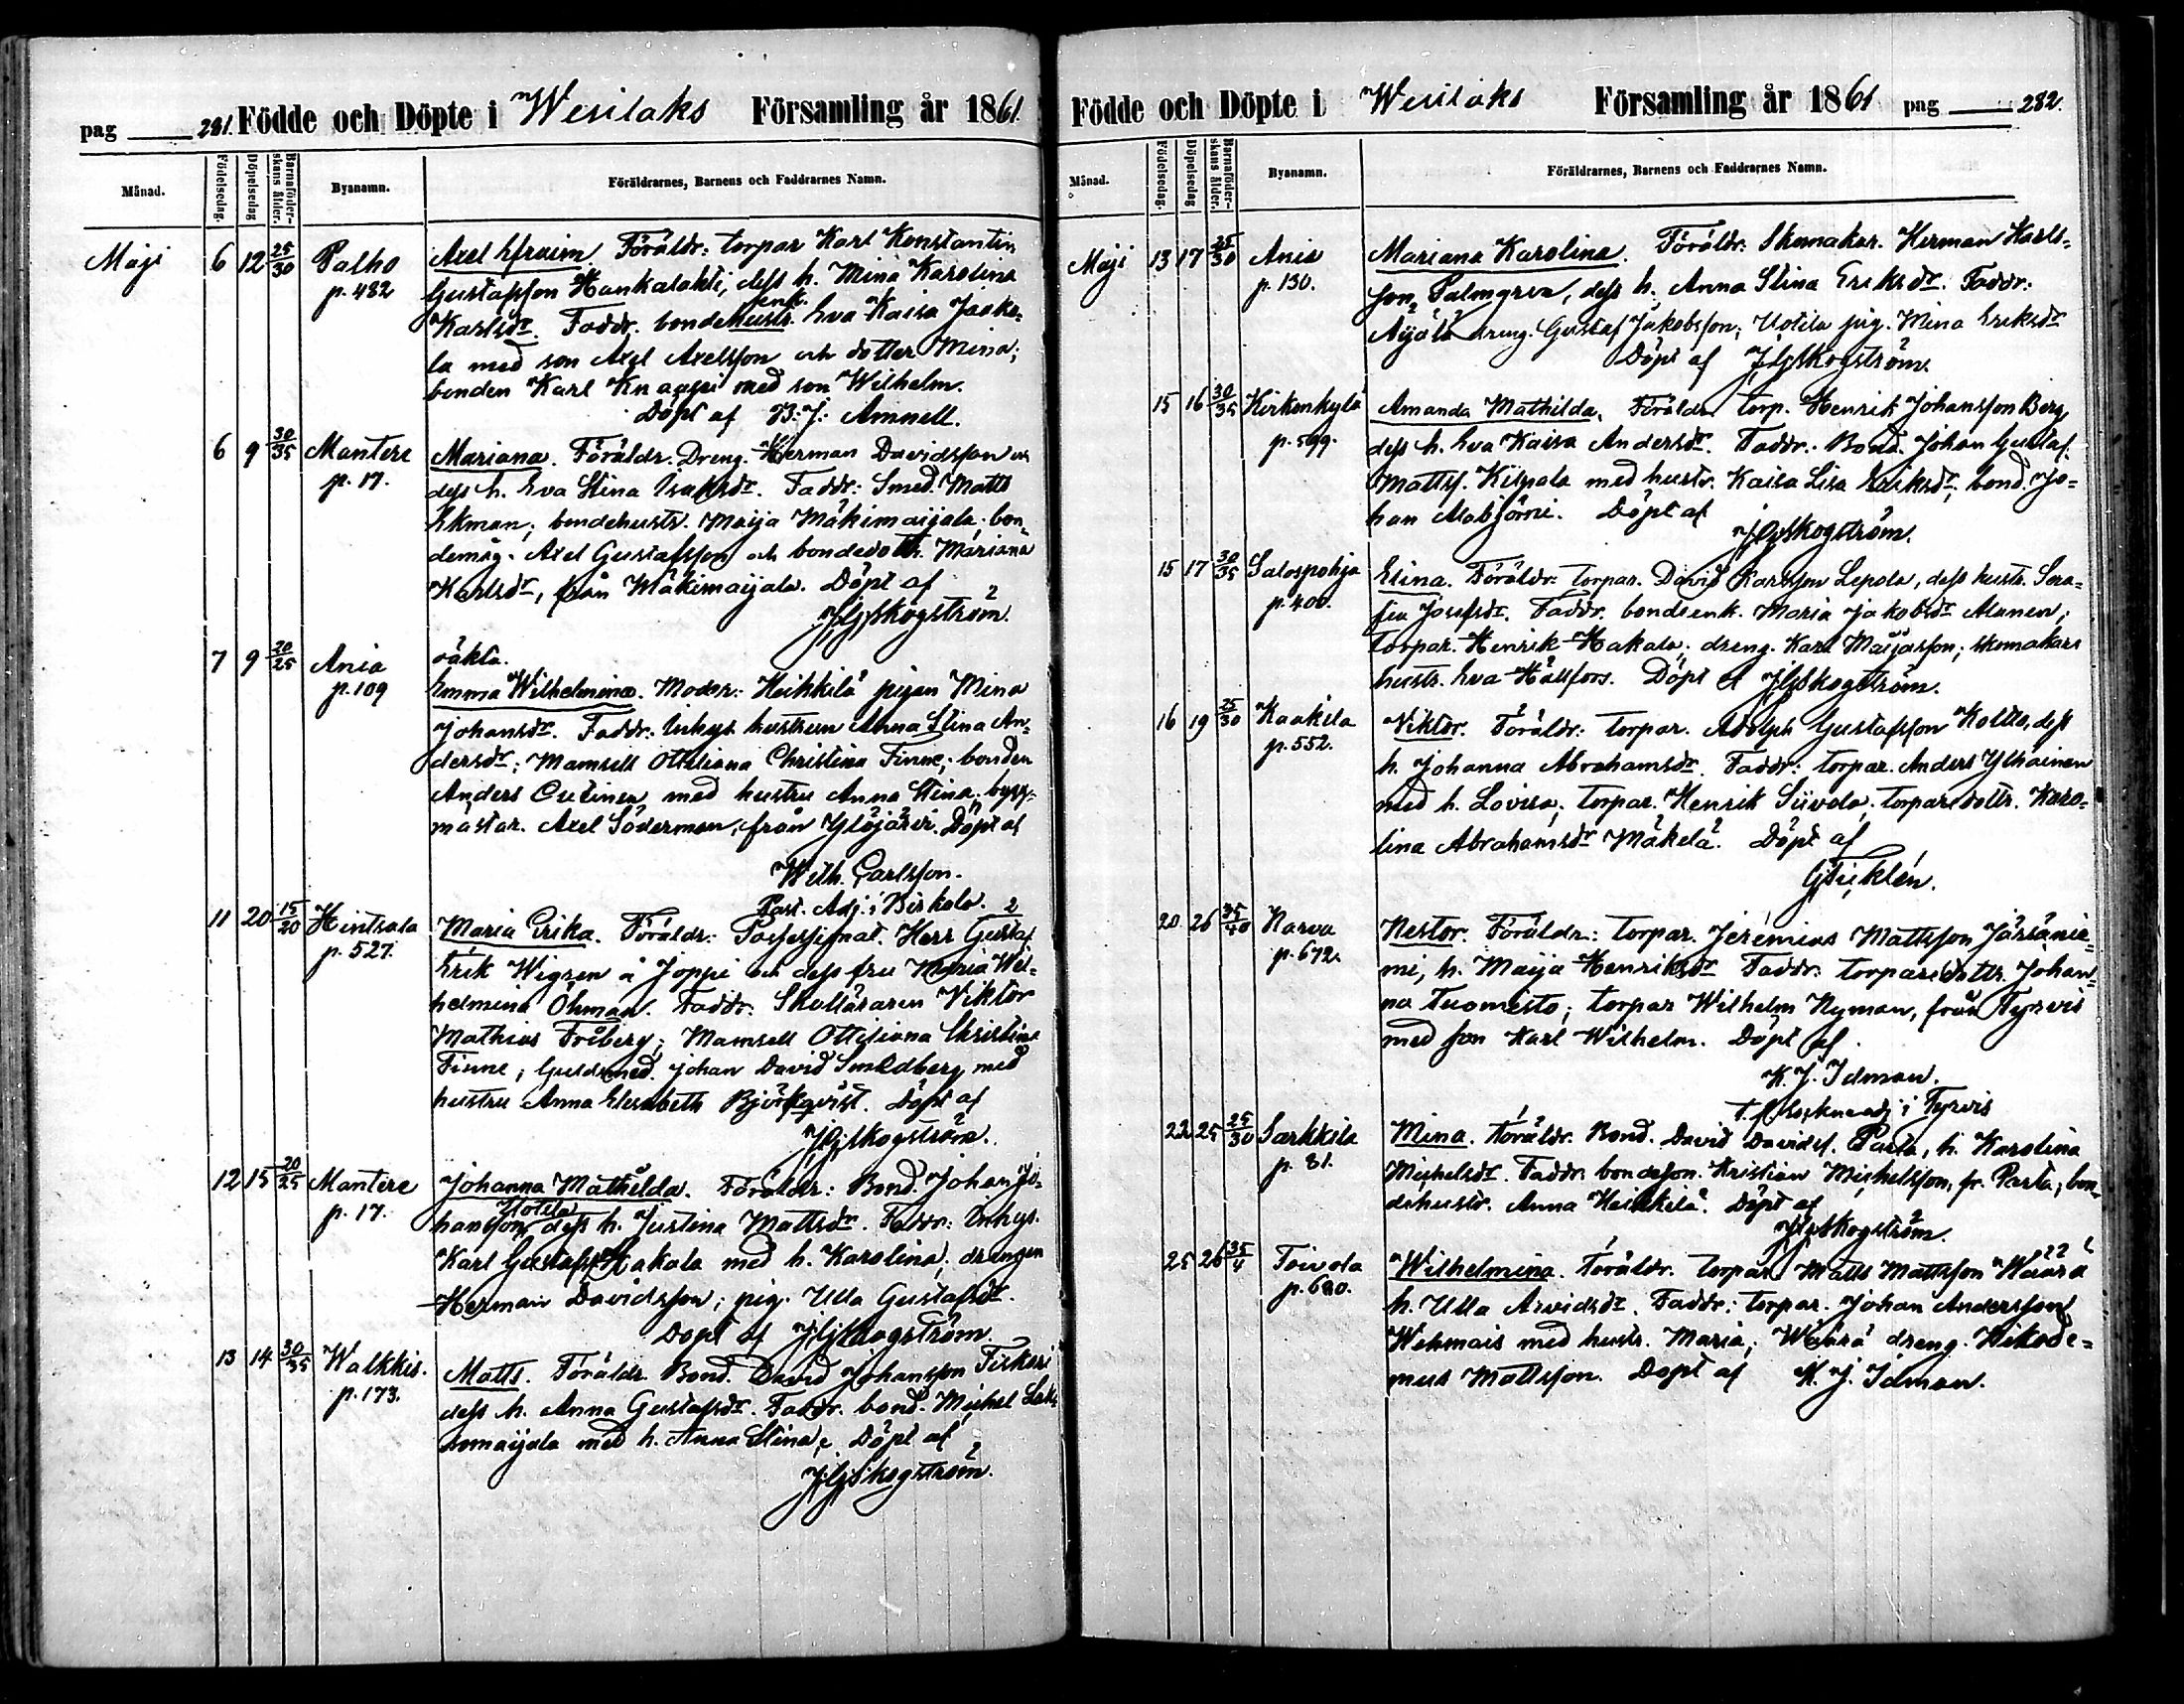 pag 281. Födde och Döpte i Wesilaks Församling år 1861.
Månad. Födelsedag. Döpelsedag Barnaföder-skans ålder. Bysnamn. Föräldrarnes, Barnens och Faddrarnes Namn.
Maji 6 12 25/30 Palho Axel Efraim. Föräldr: torpar Karl Konstantin
p. 482 Gustafsson Hankalahti, dess h. Mina Karolina
enk.
Karlsdr. Faddr. bondehustr. Eva Kaisa Jaako-
la med son Axel Axelsson och dotter Mina;
bonden Karl Knaapi med son Wilhelm.
Döpt af B. J. Amnell.
6 9 30/35 Mantere Mariana. Föräldr. Dreng. Herman Davidsson och
p. 17. dess h. Eva Stina Isaksdr. Faddr: Smed. Matts
Ekman; bondehustr. Maija Mäkimaijala; bon-
demåg. Axel Gustafsson och bondedottr. Mariana
Karlsdr, från Mäkimaijala. Döpt af
Skogström.
7 9 20/25 Ania oäkta.
p. 109 Emma Wilhelmina. Moder: Heikkilä pigan Mina
Johansdr. Faddr: Inhys hustrun Anna Stina An-
dersdr; Mamsell Ottiliana Christina Finne; bonden
Anders Outinen med hustru Anna Stina; bygg-
mästar. Axel Söderman, från Ylöjärvi. Döpt af
Wilh. Carlsson.
Past. Adj. i Birkala.
11 20 15/20 Hintsala Maria Erika. Föräldr: Possessionat. Herr Gustaf
p. 527. Erik Wigren å Joppi och dess fru Maria Wil-
helmina Öhman. Faddr: Skolläraren Viktor
Mathias Fröberg; Mamsell Ottiliana Christina
Finne; Guldsmed. Johan David Smedberg med
hustru Anna Elisabeth Björkqvist. Döpt af
Skogström.
12 15 20/25 Mantere Johanna Mathilda. Föräldr: Bond. Johan Jo-
Uotila
p. 17. hansson dess h. Justina Mattsdr. Faddr: Inhys.
Karl Gustafss. Hakala med h. Karolina; drängen
Herman Davidsson; pig. Ulla Gustafsdr.
Döpt af Skogström.
13 14 30/35 Walkkis. Matts. Föräldr. Bond. David Johansson Fiskari
p. 173. dess h. Anna Gustafsdr. Faddr. bond. Michel
maijala med h. Anna Stina. Döpt af
Skogström.
Födde och Döpte i Wesilaks Församling år 1861 pag 282.
Månad. Födelsedag. Döpelsedag Barnaföder-skans ålder. Bysnamn. Föräldrarnes, Barnens och Faddrarnes Namn.
Maji 13 17 25/30 Ania Mariana Karolina. Föräldr: Skomakar. Herman Karls-
p. 130. son Palmgren, dess h. Anna Stina Eriksdr. Faddr:
Äijälä dreng. Gustaf Jakobsson; Uotila pig. Mina Eriksdr
Döpt af Skogström.
15 16 30/35 Kirkonkylä Amanda Mathilda. Föräldr torp. Henrik Johansson Berg,
p. 599. dess h. Eva Kaisa Andersdr. Faddr: Bond. Johan Gustaf
Mattss. Kilpala med hustr. Kaisa Lisa Eriksdr; bond. Jo-
han Alabjörni. Döpt af
Skogström.
15 17 30/35 Salospohja Elina. Föräldr: torpar. David Karlsson Lepola, dess hustr. Sera-
p. 400. fia Josefsdr. Faddr. bondeenk. Maria Jakobsdr Alanen;
torpar. Henrik Hakala; dreng. Karl Maijasson; skomakare
hustr. Eva Hällfors. Döpt af Skogström.
16 19 25/30 Kaakila Viktor. Föräldr: torpar. Adolph Gustafsson Koltto, dess
p. 552. h. Johanna Abrahamsdr. Faddr: torpar. Anders Ylhäinen
med h. Lovisa; torpar. Henrik Siivola; torparedottr. Karo-
lina Abrahamsdr Mäkelä. Döpt af
20 26 35/40 Narva Nestor. Föräldr: torpar. Jeremias Mattsson Järäänie-
p. 672. mi, h. Maija Henriksdr Faddr: torparedottr. Johan-
na Tuomisto; torpar Wilhelm Nyman, från Tyrvis
med son Karl Wilhelm. Döpt af.
K. J. Idman.
t. f. Sockneadj. i Tyrvis
22 25 25/30 Sarkkila Mina. Föräldr. Bond. David Davidss. Parta, h. Karolina
p. 81. Michelsdr. Faddr: bondeson. Kristian Michelsson, fr. Parta; bon-
dehustr. Anna Heikkilä. Döpt af
Skogström.
25 26 35/4 Toivola Wilhelmina. Föräldr. torpar Matts Mattsson Wäärä
p. 680. h. Ulla Arvidsdr. Faddr: torpar. Johan Andersson
Wehmais med hustr. Maria; Wäärä dreng. Nikode-
mus Mattsson. Döpt af K. J. Idman.